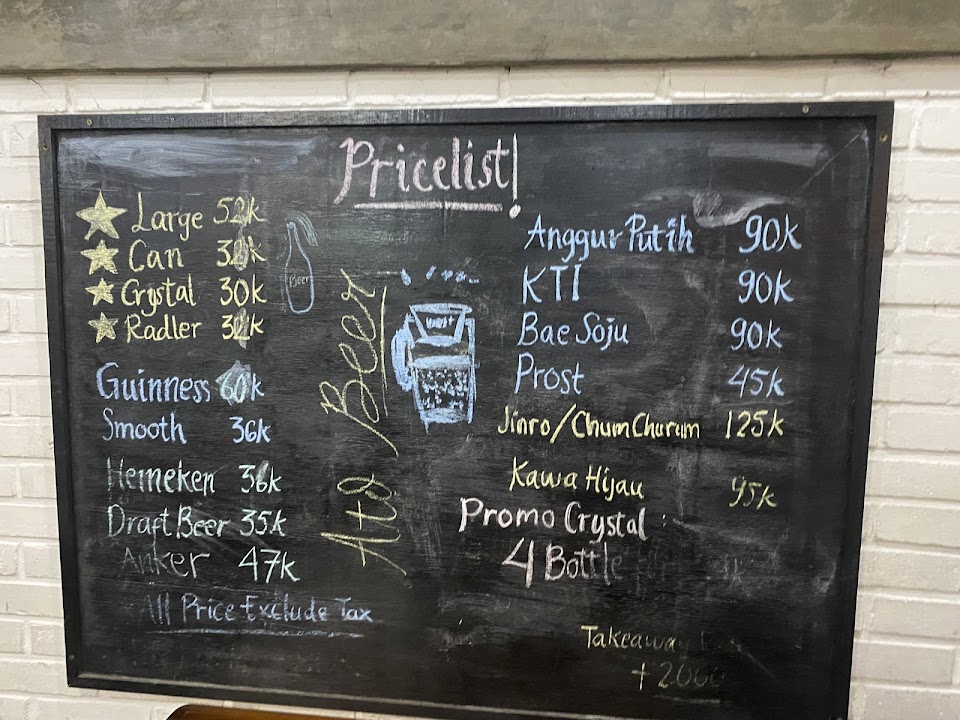 Pricelist!
Large 52k
Can 32k
Crystal 30k
Radler 32k
Guinness 60k
Smooth 36k
Heineken 36k
Draft Beer 35k
Anker 47k
All Price Exclude Tax
Beer
Beer
Anggur Putih 90k
KTI 90k
Bae Soju 90k
Prost 45k
Jinro/Chum Churum 125k
Kawa Hijau 95k
Promo Crystal :
4 Bottle
Takeaway
+ 2000